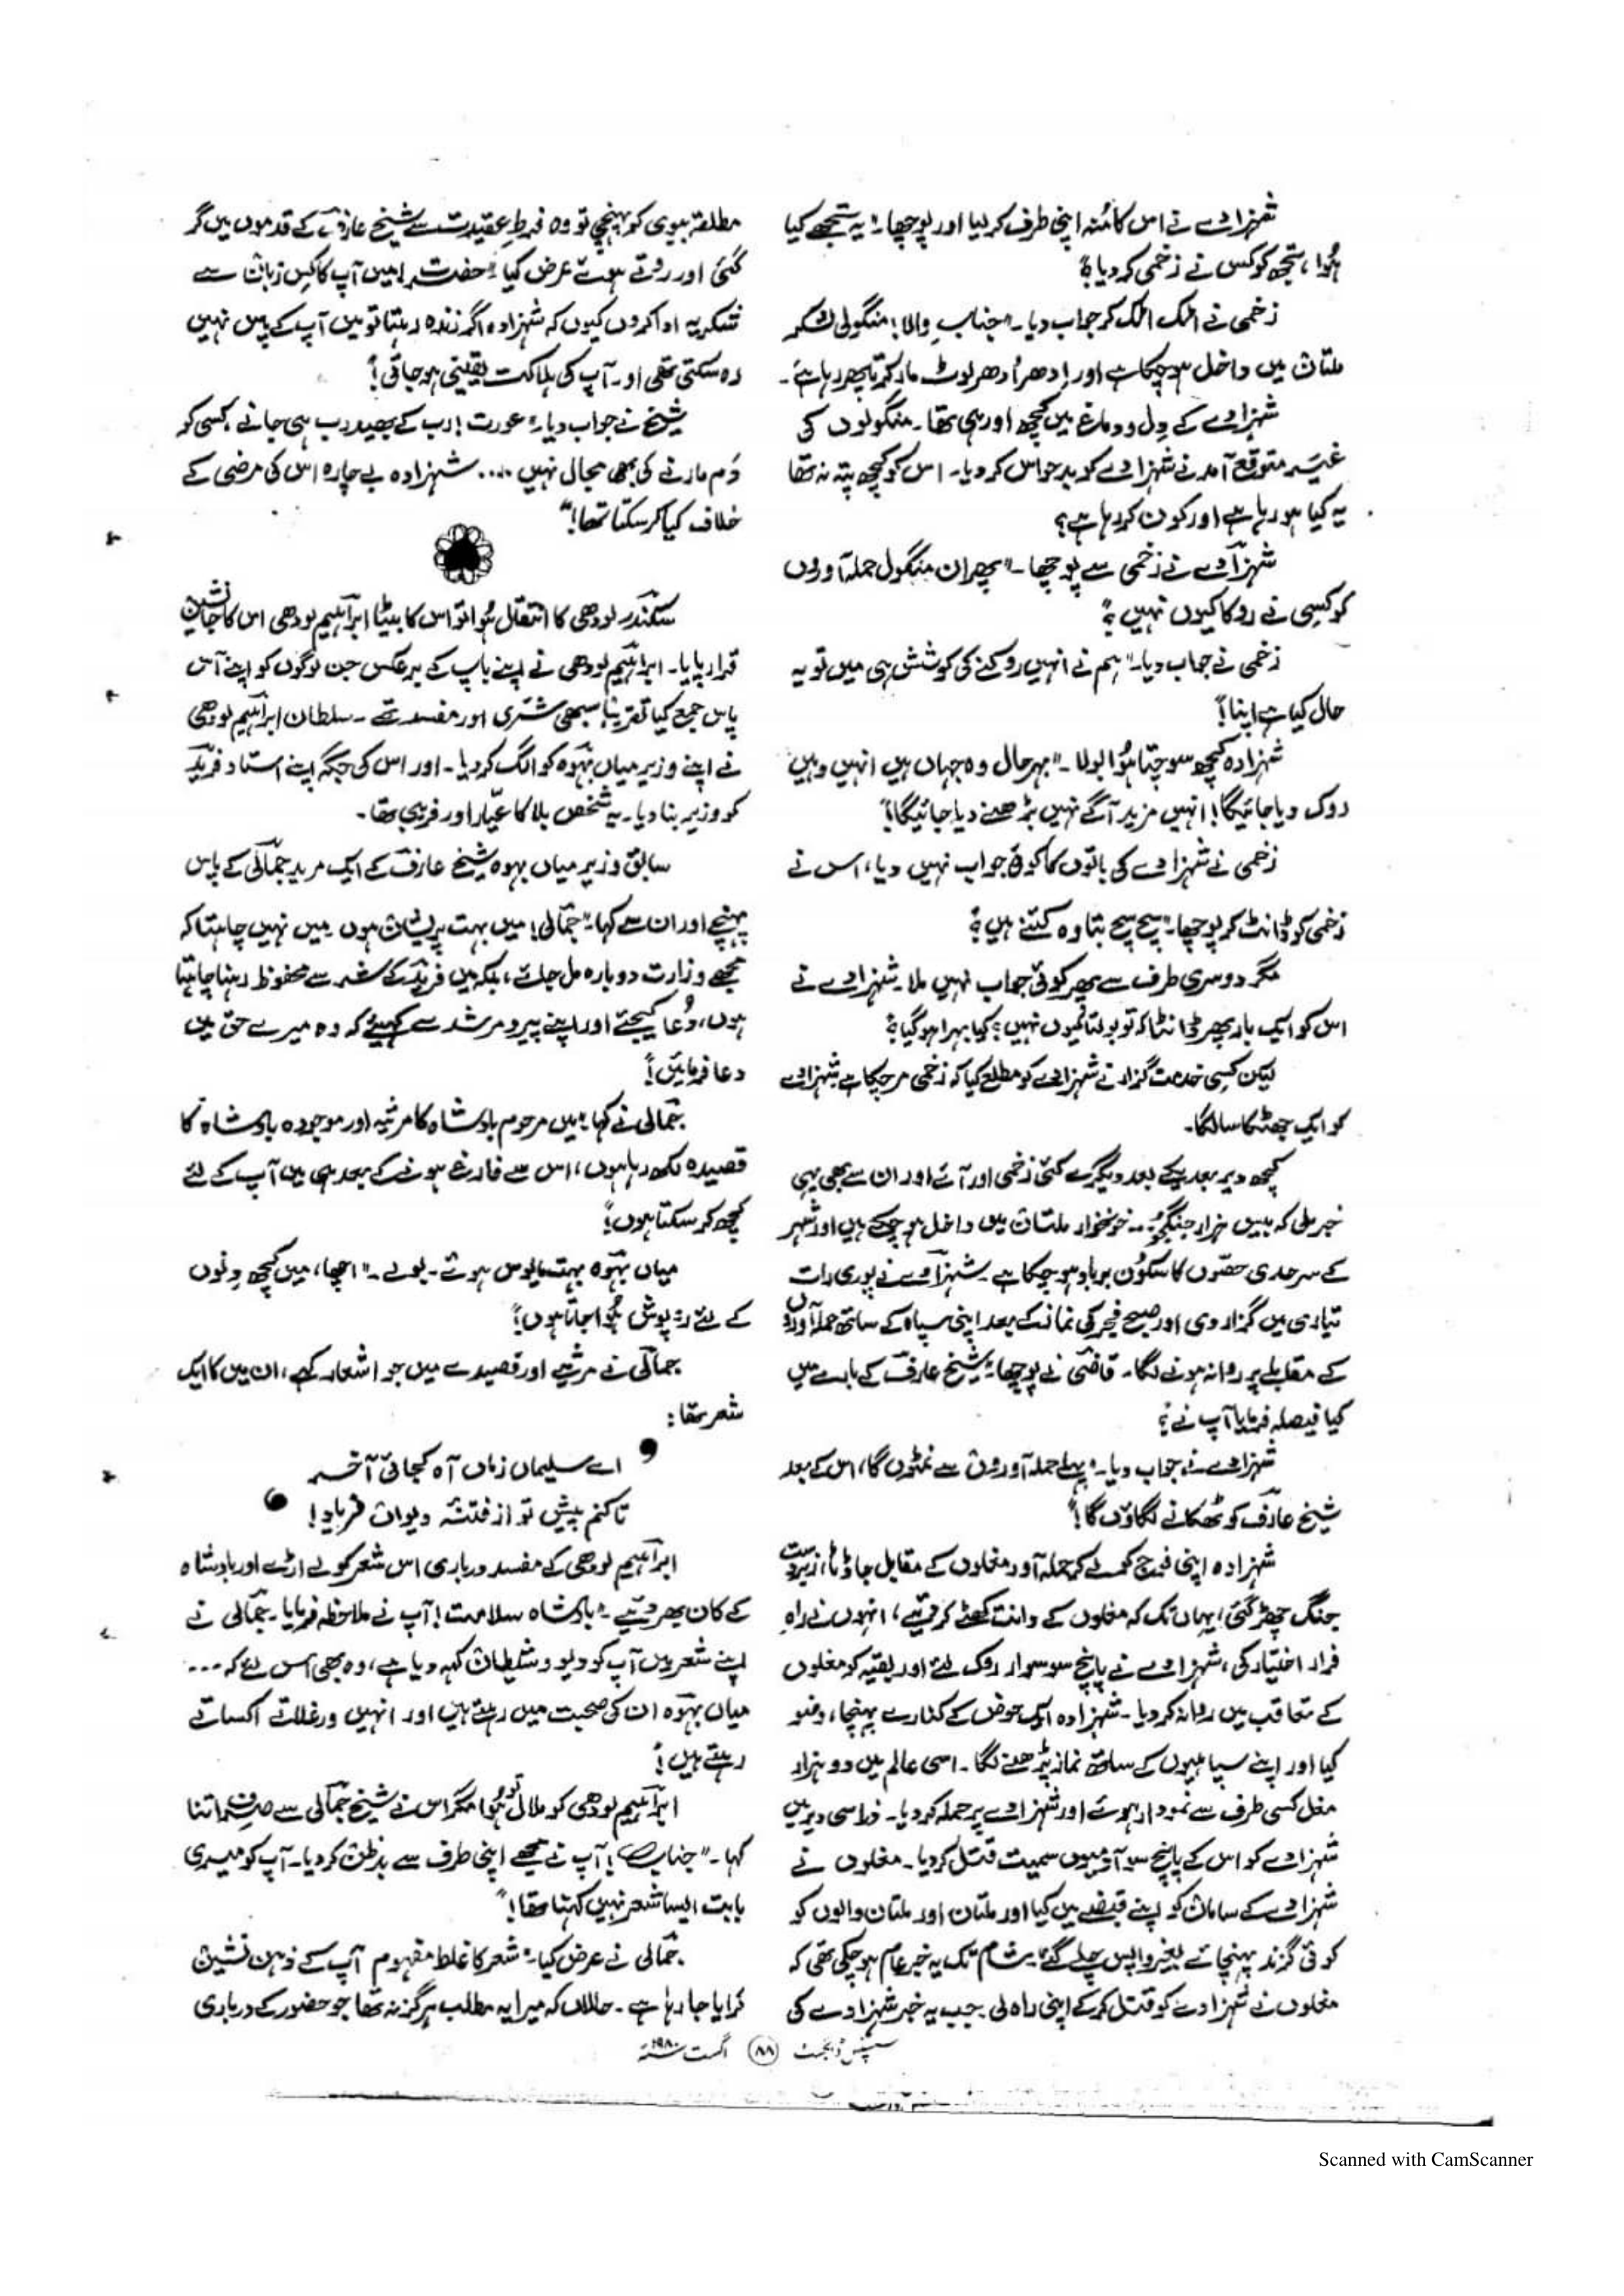 شہزادے نے اس کا مُنہ اپنی طرف کر لیا اور پوچھا۔ "یہ تجھے کیا
ہُوا، تجھ کو کس نے زخمی کر دیا؟"
زخمی نے اٹک اٹک کر جواب دیا۔ "جنابِ والا! منگولی لشکر
ملتان میں داخل ہو چکا ہے اور اِدھر اُدھر لوٹ مار کرتا پھر رہا ہے۔
شہزادے کے دِل و دماغ میں کچھ اور ہی تھا۔ منگولوں کی
غیر متوقع آمد نے شہزادے کو بدحواس کر دیا۔ اس کو کچھ پتہ نہ تھا
یہ کیا ہو رہا ہے اور کون کر رہا ہے؟
شہزادے نے زخمی سے پوچھا۔ "پھر ان منگول حملہ آوروں
کو کسی نے روکا کیوں نہیں؟"
زخمی نے جواب دیا۔ "ہم نے انہیں روکنے کی کوشش ہی میں تو یہ
حال کیا ہے اپنا!"
شہزادہ کچھ سوچتا ہُوا بولا۔ "بہرحال وہ جہاں ہیں انہیں وہیں
روک دیا جائیگا! انہیں مزید آگے نہیں بڑھنے دیا جائیگا!"
زخمی نے شہزادے کی باتوں کا کوئی جواب نہیں دیا، اس نے
زخمی کو ڈانٹ کر پوچھا۔ "سچ سچ بتا وہ کتنے ہیں؟"
مگر دوسری طرف سے پھر کوئی جواب نہیں ملا۔ شہزادے نے
اس کو ایک بار پھر ڈانٹا کہ تو بولتا کیوں نہیں؟ کیا بہرا ہو گیا؟
لیکن کسی خدمت گزار نے شہزادے کو مطلع کیا کہ زخمی مر چکا ہے شہزادے
کو ایک جھٹکا سا لگا۔
کچھ دیر بعد یکے بعد دیگرے کئی زخمی اور آئے اور ان سے بھی یہی
خبر ملی کہ بیس ہزار جنگجو۔۔ خونخوار ملتان میں داخل ہو چکے ہیں اور شہر
کے سرحدی حصّوں کا سکُون برباد ہو چکا ہے۔ شہزادے نے پوری رات
تیاری میں گزار دی اور صبح فجر کی نماز کے بعد اپنی سپاہ کے ساتھ حملہ آوروں
کے مقابلے پر روانہ ہونے لگا۔ قاضی نے پوچھا۔ "شیخ عارف کے بارے میں
کیا فیصلہ فرمایا آپ نے؟"
شہزادے نے جواب دیا۔ "پہلے حملہ آوروں سے نمٹوں گا، اس کے بعد
شیخ عارف کو ٹھکانے لگاؤں گا!"
شہزادہ اپنی فوج کو لے کر حملہ آور مغلوں کے مقابل جا ڈٹا، زبردست
جنگ چھڑ گئی، یہاں تک کہ مغلوں کے دانت کھٹے کر دیئے، انہوں نے راہِ
فرار اختیار کی، شہزادے نے پانچ سو سوار روک لئے اور بقیہ کو مغلوں
کے تعاقب میں روانہ کر دیا۔ شہزادہ ایک حوض کے کنارے پہنچا، وضو
کیا اور اپنے سپاہیوں کے ساتھ نماز پڑھنے لگا۔ اسی عالم میں دو ہزار
مغل کسی طرف سے نمودار ہوئے اور شہزادے پر حملہ کر دیا۔ ذرا سی دیر میں
شہزادے کو اس کے پانچ سو آدمیوں سمیت قتل کر دیا۔ مغلوں نے
شہزادے کے سامان کو اپنے قبضے میں کیا اور ملتان اور ملتان والوں کو
کوئی گزند پہنچائے بغیر واپس چلے گئے۔ شام تک یہ خبر عام ہو چکی تھی کہ
مغلوں نے شہزادے کو قتل کر کے اپنی راہ لی۔ جب یہ خبر شہزادے کی
مطلقہ بیوی کو پہنچی تو وہ فرطِ عقیدت سے شیخ عارف کے قدموں میں گر
گئی اور روتے ہوئے عرض کیا۔ "حضرت! میں آپ کا کس زبان سے
شکریہ ادا کروں کیوں کہ شہزادہ اگر زندہ رہتا تو میں آپ کے پاس نہیں
رہ سکتی تھی اور آپ کی ہلاکت یقینی ہو جاتی!"
شیخ نے جواب دیا۔ "عورت! رب کے بھید رب ہی جانے، کسی کو
دَم مارنے کی بھی مجال نہیں .... شہزادہ بے چارہ اس کی مرضی کے
خلاف کیا کر سکتا تھا!"
سکندر لودھی کا انتقال ہُوا تو اس کا بیٹا ابراہیم لودھی اس کا جانشین
قرار پایا۔ ابراہیم لودھی نے اپنے باپ کے برعکس جن لوگوں کو اپنے آس
پاس جمع کیا تقریباً سبھی شرّی اور مفسد تھے۔ سلطان ابراہیم لودھی
نے اپنے وزیر میاں بہوہ کو الگ کر دیا۔ اور اس کی جگہ اپنے استاد فرید
کو وزیر بنا دیا۔ یہ شخص بلا کا عیّار اور فریبی تھا۔
سابق وزیر میاں بہوہ شیخ عارف کے ایک مرید جمالی کے پاس
پہنچے اور ان سے کہا۔ "جمالی! میں بہت پریشان ہوں میں نہیں چاہتا کہ
مجھے وزارت دوبارہ مل جائے، بلکہ میں فرید کے شر سے محفوظ رہنا چاہتا
ہوں، دُعا کیجئے اور اپنے پیر و مرشد سے کہیئے کہ وہ میرے حق میں
دعا فرمائیں!"
جمالی نے کہا۔ "میں مرحوم بادشاہ کا مرثیہ اور موجودہ بادشاہ کا
قصیدہ لکھ رہا ہوں، اس سے فارغ ہونے کے بعد ہی میں آپ کے لئے
کچھ کر سکتا ہوں!"
میاں بہوہ بہت مایوس ہوئے۔ بولے۔ "اچھا، میں کچھ دِنوں
کے لئے روپوش ہُوا جاتا ہوں!"
جمالی نے مرثیے اور قصیدے میں جو اشعار کہے، ان میں کا ایک
شعر تھا:
اے سلیمان زماں آہ کجائی آخر
تا کنم پیش تو از فتنۂ دیوان فریاد!
ابراہیم لودھی کے مفسد درباری اس شعر کو لے اڑے اور بادشاہ
کے کان بھر دیئے۔ "بادشاہ سلامت! آپ نے ملاحظہ فرمایا۔ جمالی نے
اپنے شعر میں آپ کو دیو و شیطان کہہ دیا ہے، وہ بھی اس لئے کہ ...
میاں بہوہ ان کی صحبت میں رہتے ہیں اور انہیں ورغلاتے اکساتے
رہتے ہیں!"
ابراہیم لودھی کو ملال تو ہُوا مگر اس نے شیخ جمالی سے صرف اتنا
کہا۔ "جناب! آپ نے مجھے اپنی طرف سے بدظن کر دیا۔ آپ کو میری
بابت ایسا شعر نہیں کہنا تھا!"
جمالی نے عرض کیا۔ "شعر کا غلط مفہوم آپ کے ذہن نشین
کرایا جا رہا ہے۔ حالاں کہ میرا یہ مطلب ہرگز نہ تھا جو حضور کے درباری
سسپنس ڈائجسٹ ۸۸ اگست ۱۹۸۰ء
Scanned with CamScanner